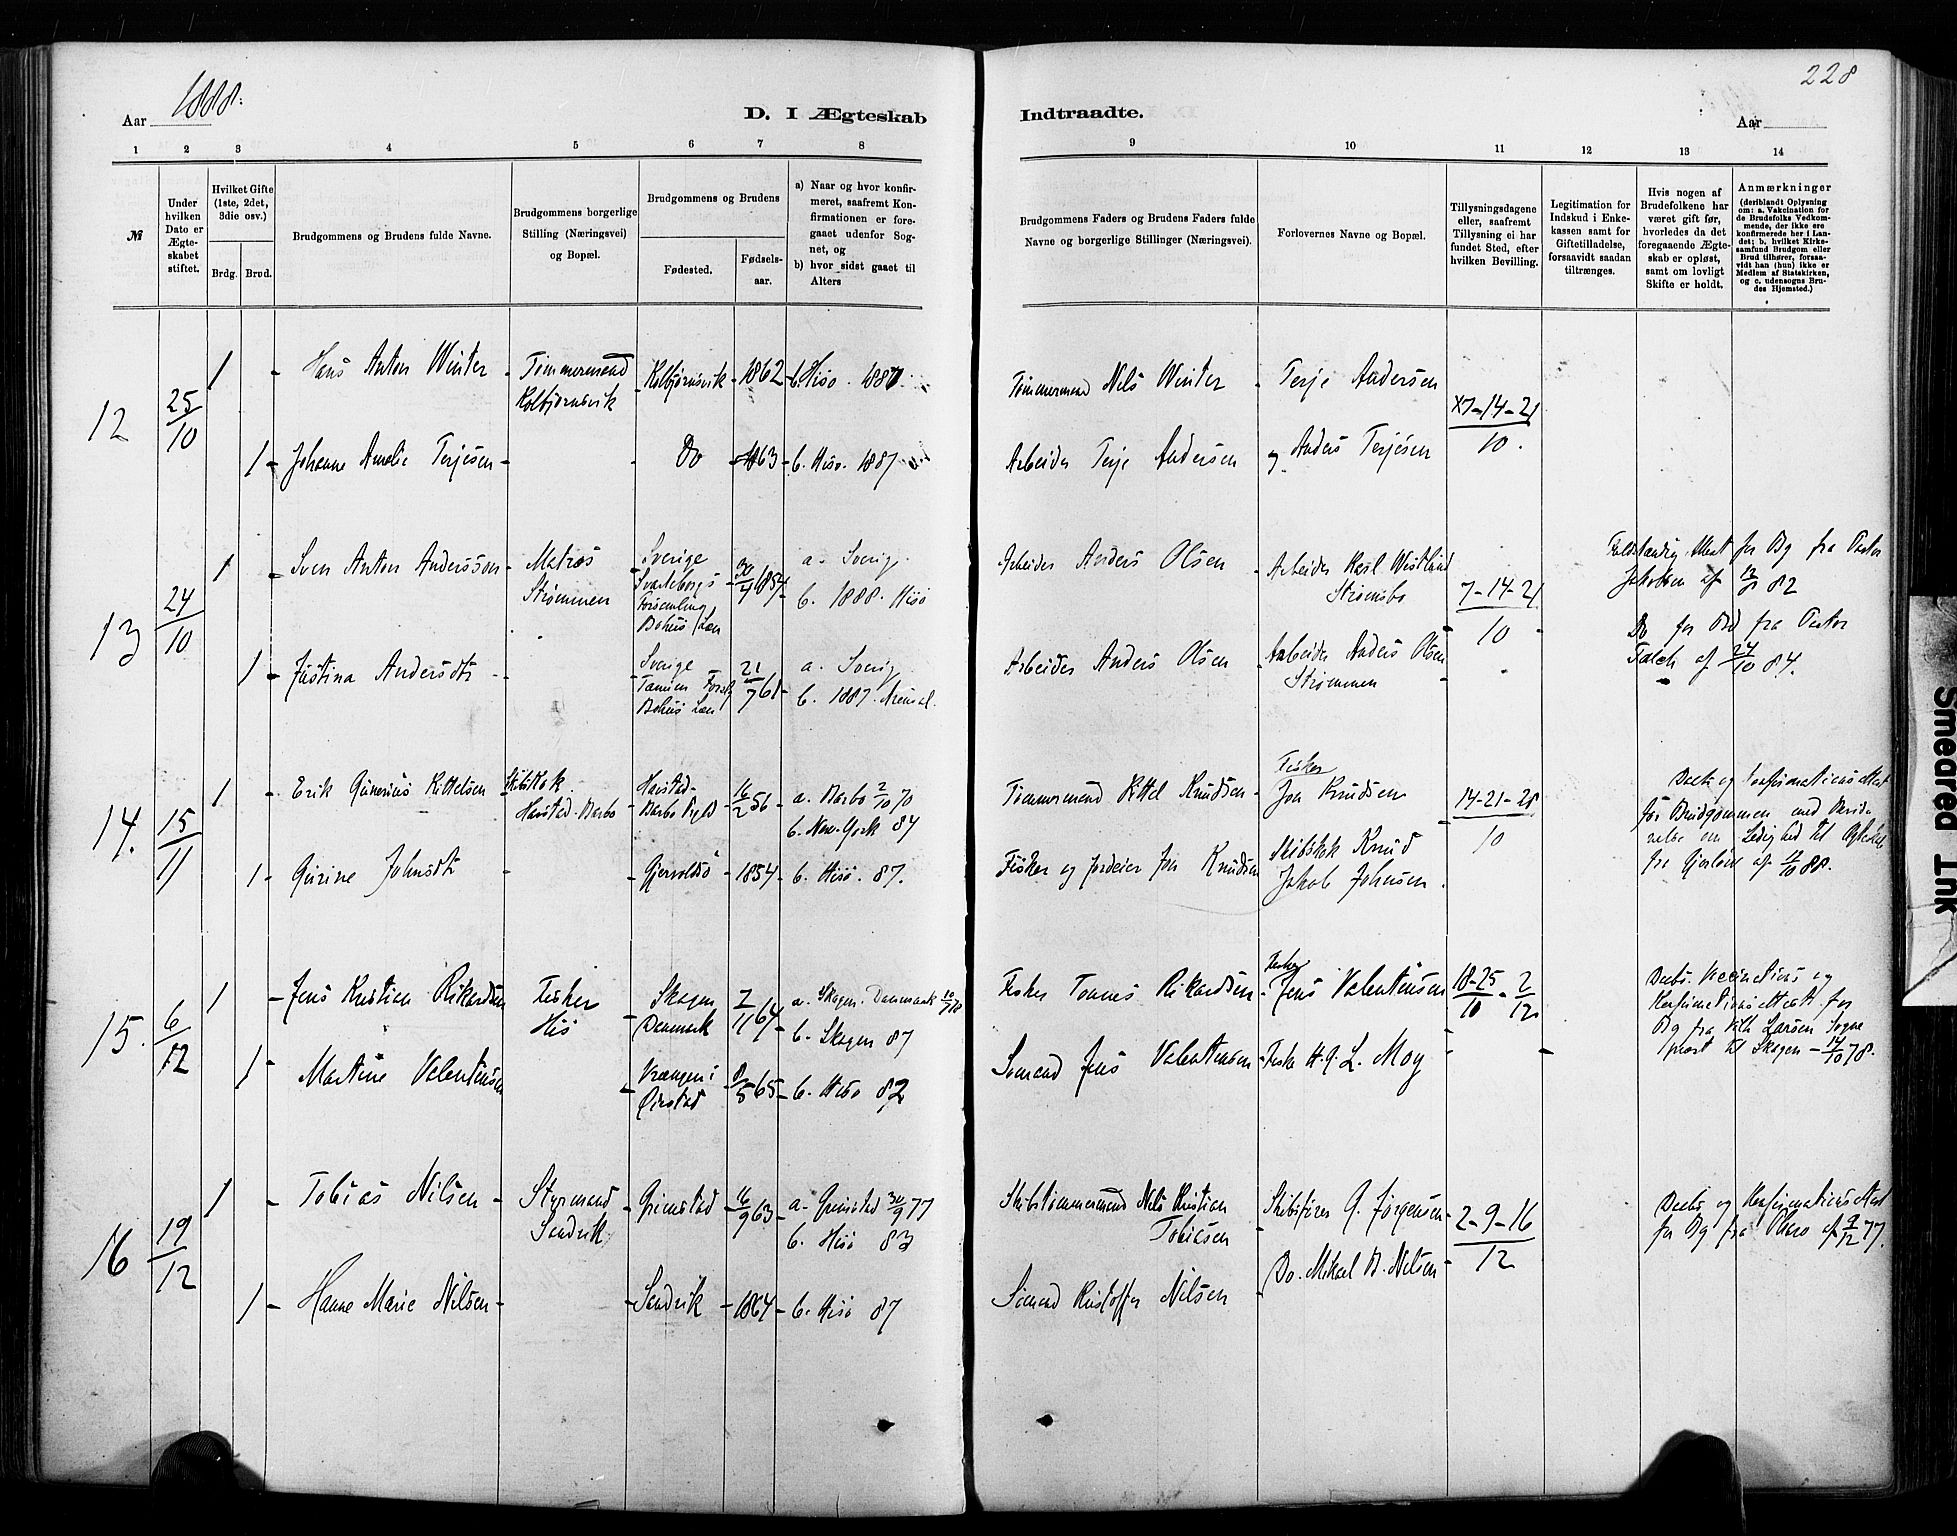 228
Aar 1888.
D. I Ægteskab
Indtraadte.
Aar
1 2 3 4 5 6 7 8
9 10 11 12 13 14
№
Under hvilken Dato er Ægteskabet stiftet.
Hvilket Gifte (1ste, 2det, 3die osv.)
Brdg. Brud.
Brudgommens og Brudens fulde Navne.
Brudgommens borgerlige Stilling (Næringsvei) og Bopæl.
Brudgommens og Brudens
Fødested.
Fødselsaar.
a) Naar og hvor konfirmeret, saafremt Konfirmationen er foregaaet udenfor Sognet, og
b) hvor sidst gaaet til Alters
Brudgommens Faders og Brudens Faders fulde Navne og borgerlige Stillinger (Næringsvei).
Forlovernes Navne og Bopæl.
Tillysningsdagene eller, saafremt Tillysning ei har fundet Sted, efter hvilken Bevilling.
Legitimation for Indskud i Enkekassen samt for Giftetilladelse, forsaavidt saadan tiltrænges.
Hvis nogen af Brudefolkene har været gift før, hvorledes da det foregaaende Ægteskab er opløst, samt om lovligt Skifte er holdt.
Anmærkninger (deriblandt Oplysning om: a. Vakcination for de Brudefolks Vedkommende, der ikke ere konfirmerede her i Landet; b. hvilket Kirkesamfund Brudgom eller Brud tilhører, forsaavidt han (hun) ikke er Medlem af Statskirken, og c. udensogns Brudes Hjemsted.)
12 25/10
1 - Hans Anton Winter - Tømmermand Kolbjørnsvik - Kolbjørnsvik - 1862 - b. Hisø. 1887.
Tømmermand Nils Winter - Terje Andersen
7-14-21/10.
1 - Johanne Amalie Terjesen - Do - 1863 - b. Hisø. 1887
Arbeider Terje Andersen og Anders Terjesen
13 24/10
1 - Sven Anton Andersson - Matros Strømmen
Sverige Svarteborgs Forsamling Bohus Læn 30/4 1857
a. Sverig.
b. 1888. Hisø
Arbeider Anders Olsen - Arbeider Karl Westlund Strømsbo
7-14-21/10
Fuldstændig Attest for Bg fra Pastor
Do for Brd fra Pastor
Falch af 24/10 84.
1 - Justina Andersdtr
Sverige Bohus Læn 21/7 61
a. Sverig
b. 1887. Arendal.
Arbeider Anders Olsen - Arbeider Anders Olsen Strømmen
14. 15/11
1 - Erik Gunerius Kittelsen - Skibskok. Harstad-Barbo
Harstad-Barbo 16/2 56
a. Barbo 2/10 70
b. New-York 87
Tømmermand Kittel Knudsen - Fisker Jon Knudsen
14-21-28/10
1 - Gurine Johnsdtr - Gjervoldsø - 1854 - b. Hisø. 87.
Fisker og Jordeier Jon Knudsen
Skibskok Knud Jakob Johnsen.
15. 6/12
1 - Jens Kristian Rikardsen Fisker His
Skagen Danmark 7/11 64
a. Skagen. Danmark
b. Skagen 87
Fisker Tomas Rikardsen - Fisker Jens Valentinsen
18-25/10 - 2/12
1 - Martine Valentinsen
Vrængen i Øiestad 8/5 65 - b. Hisø 82
Sømand Jens Valentinsen - Fisker H. G. L. Moy
Skagen - 14/10 78.
16 19/12
1 - Tobias Nilsen - Styrmand Sandvik
Grimstad - 16/9 63
a. Grimstad 30/9 77
b. Hisø 83
Skibstømmermand Nils Kristian Tobiasen
Skibsfører G. Jørgensen
2-9-16/12
1 - Hanne Marie Nilsen - Sandvik - 1864 - b. Hisø 87
Sømand Kristoffer Nilsen
Do. Mikael B. Nilsen
Smeared Ink